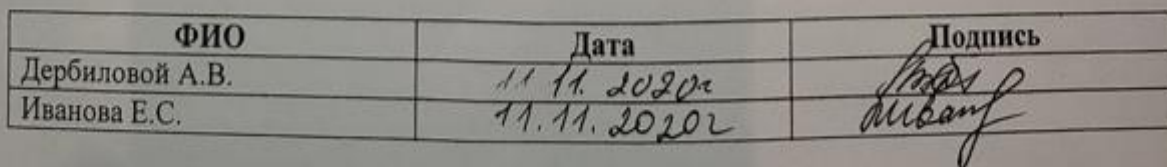 ФИО Дата Подпись
Дербиловой А.В. 11 11. 2020г
Иванова Е.С. 11.11. 2020г